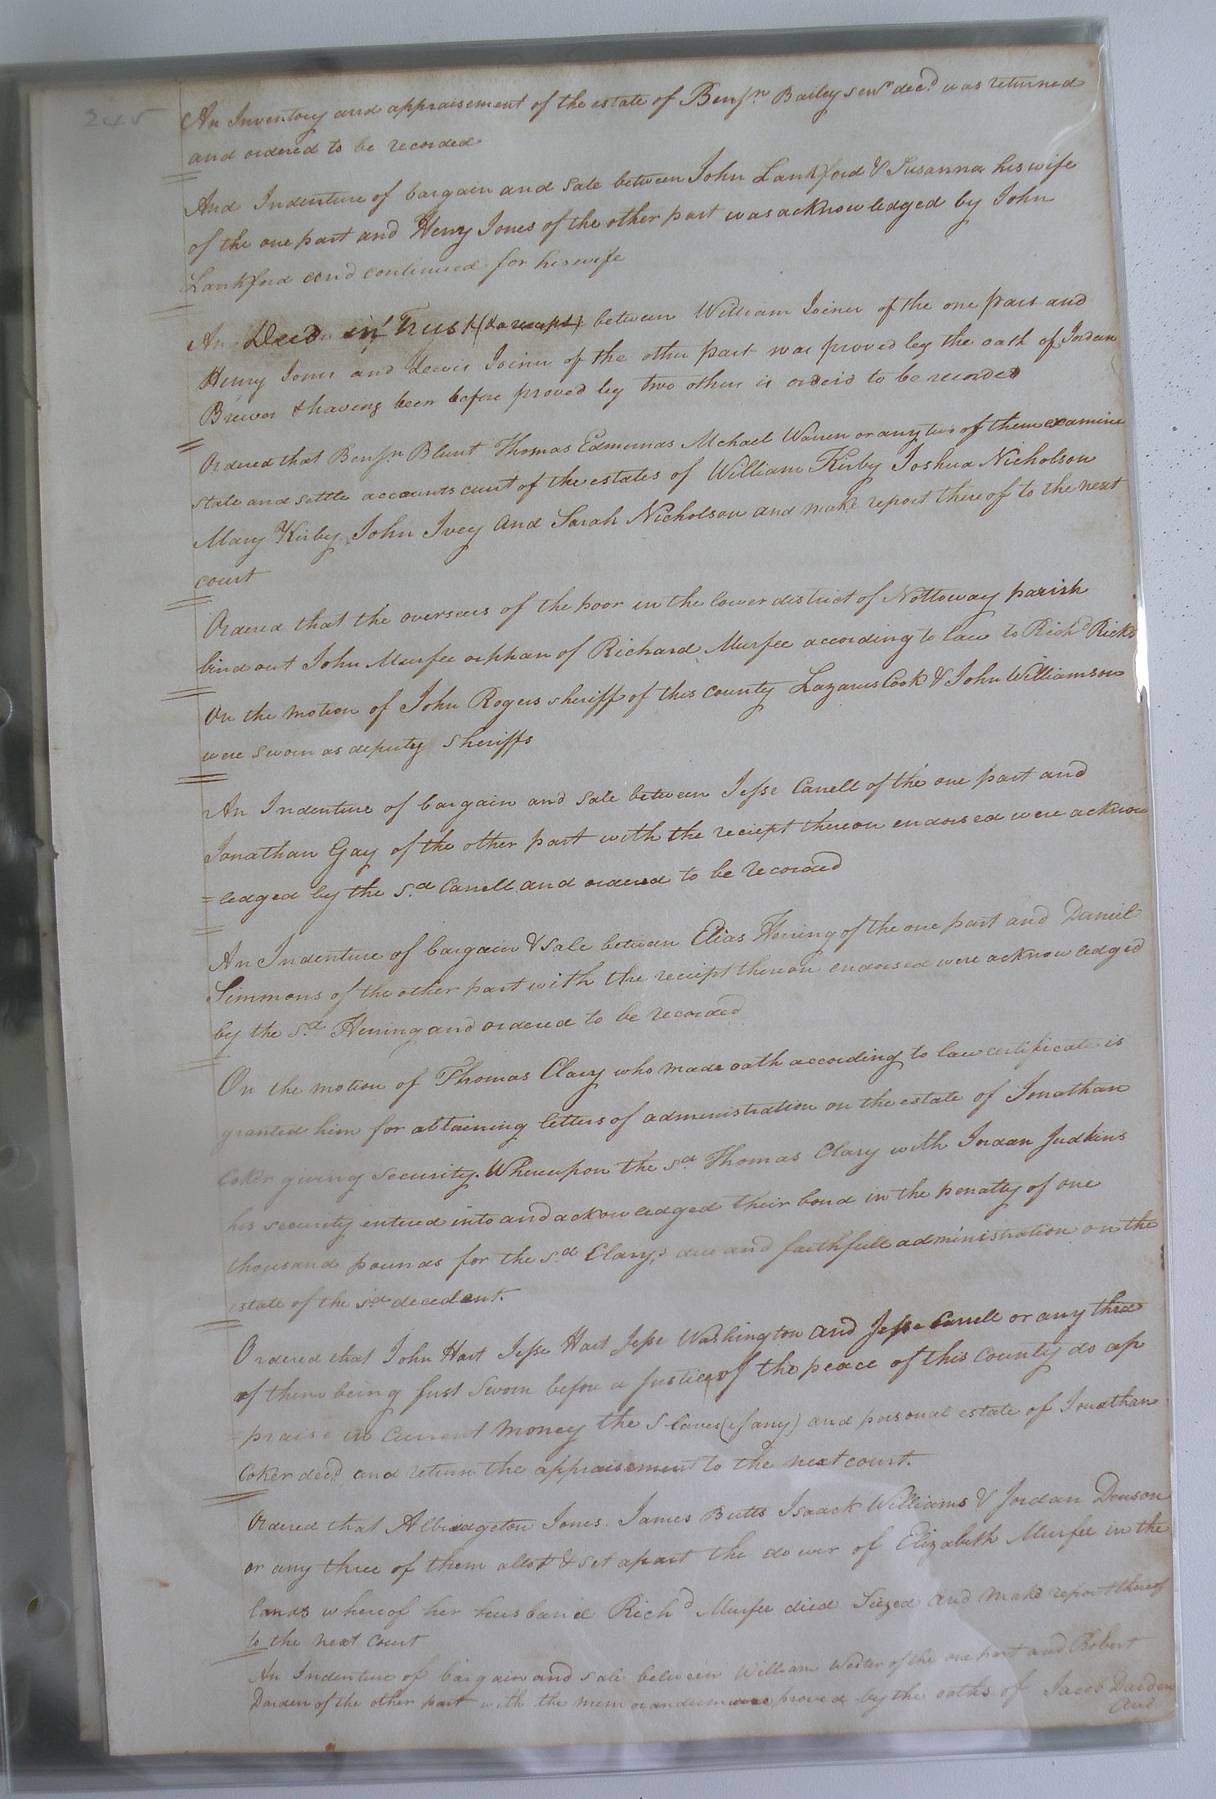 245
An Inventory and appraisement of the estate of Benjn Bailey senr decd was returned
and ordered to be recorded
And Indenture of bargain and sale between John Lankford & Susanna his wife
of the one part and Henry Jones of the other part was acknowledged by John
Lankford and continued for his wife
An Deed in Trust between William Joiner of the one part and
Henry Jones and Lewis Joiner of the other part was proved by the oath of Jordan
Brewer & having been before proved by two others is orderd to be recorded
Ordered that Benjn Blunt Thomas Edmunds Mchael Warren or any two of them examine
state and settle accounts curt of the estates of William Kirby Joshua Nicholson
Mary Kirby John Ivey And Sarah Nicholson and make report thereof to the next
court
Ordered that the overseers of the poor in the lower district of Nottoway parish
bind out John Murfee orphan of Richard Murfee according to law to Richd Ricks
On the motion of John Rogers sheriff of this county Lazarus Cook & John Williamson
were sworn as deputy sheriffs
An Indenture of bargain and sale between Jesse Carrell of the one part and
Jonathan Gay of the other part with the reciept thereon endorsed were acknow
=ledged by the sd Carrell and ordered to be recorded
An Indenture of bargain & sale between Elias Herring of the one part and Daniel
Simmons of the other part with the reciept thereon endorsed were acknowledged
by the sd Herring and ordered to be recorded
On the motion of Thomas Clary who made oath according to law certificate is
granted him for obtaining letters of administration on the estate of Jonathan
Coker giving security. Whereupon the sd Thomas Clary with Jordan Judkins
his security entered into and acknowledged their bond in the penalty of one
thousand pounds for the sd Clary,s due and faithfull administration on the
estate of the sd decedent.
Ordered that John Hart Jesse Hart Jesse Washington and Jesse Carrell or any three
of them being first sworn before a justice of the peace of this County do ap
=praise in Current money the Slaves (if any) and personal estate of Jonathan
Coker decd and return the appraisement to the next court.
Ordered that Albridgeton Jones James Butts Isaack Williams & Jordan Denson
or any three of them allot & set apart the dower of Elizabeth Murfee in the
lands whereof her husband Richd Murfee died Siezed and make report thereof
to the next court
An Indenture of bargain and sale between William Wester of the one part and Robert
Darden of the other part with the memorandum were proved by the oaths of Jacob Darden
And